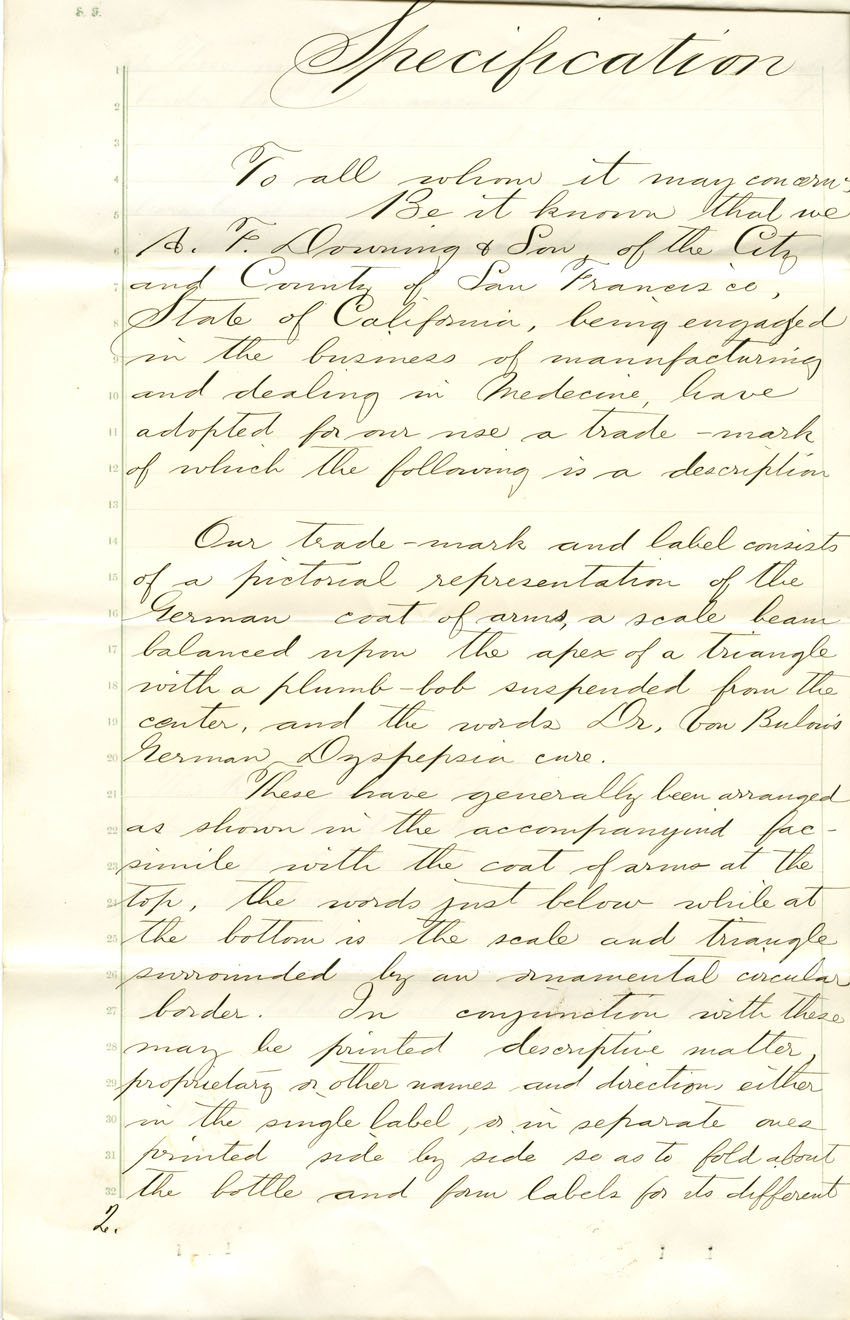 Specification
To all whom it may concern:
Be it known that we
A. F. Downing & Son, of the City
and County of San Francisco,
State of California, being engaged
in the business of mannfacturing
and dealing in Medecine, have
adopted for our use a trade-mark
of which the following is a description
Our trade-mark and label consists
of a pictorial representation of the
German coat of arms, a scale beam
balanced upon the apex of a triangle
with a plumb-bob suspended from the
center, and the words Dr. Von Bulow's
German Dyspepsia cure.
These have generally been arranged
as shown in the accompanyind fac-
simile with the coat of arms at the
top, the words just below while at
the bottom is the scale and triangle
surrounded by an ornamental circular
border. In conjunction with these
may be printed descriptive matter,
proprietary or other names and direction, either
in the single label, or in separate ones
printed side by side so as to fold about
the bottle and form labels for its different
2.
1
2
3
4
5
6
7
8
9
10
11
12
13
14
15
16
17
18
19
20
21
22
23
24
25
26
27
28
29
30
31
32